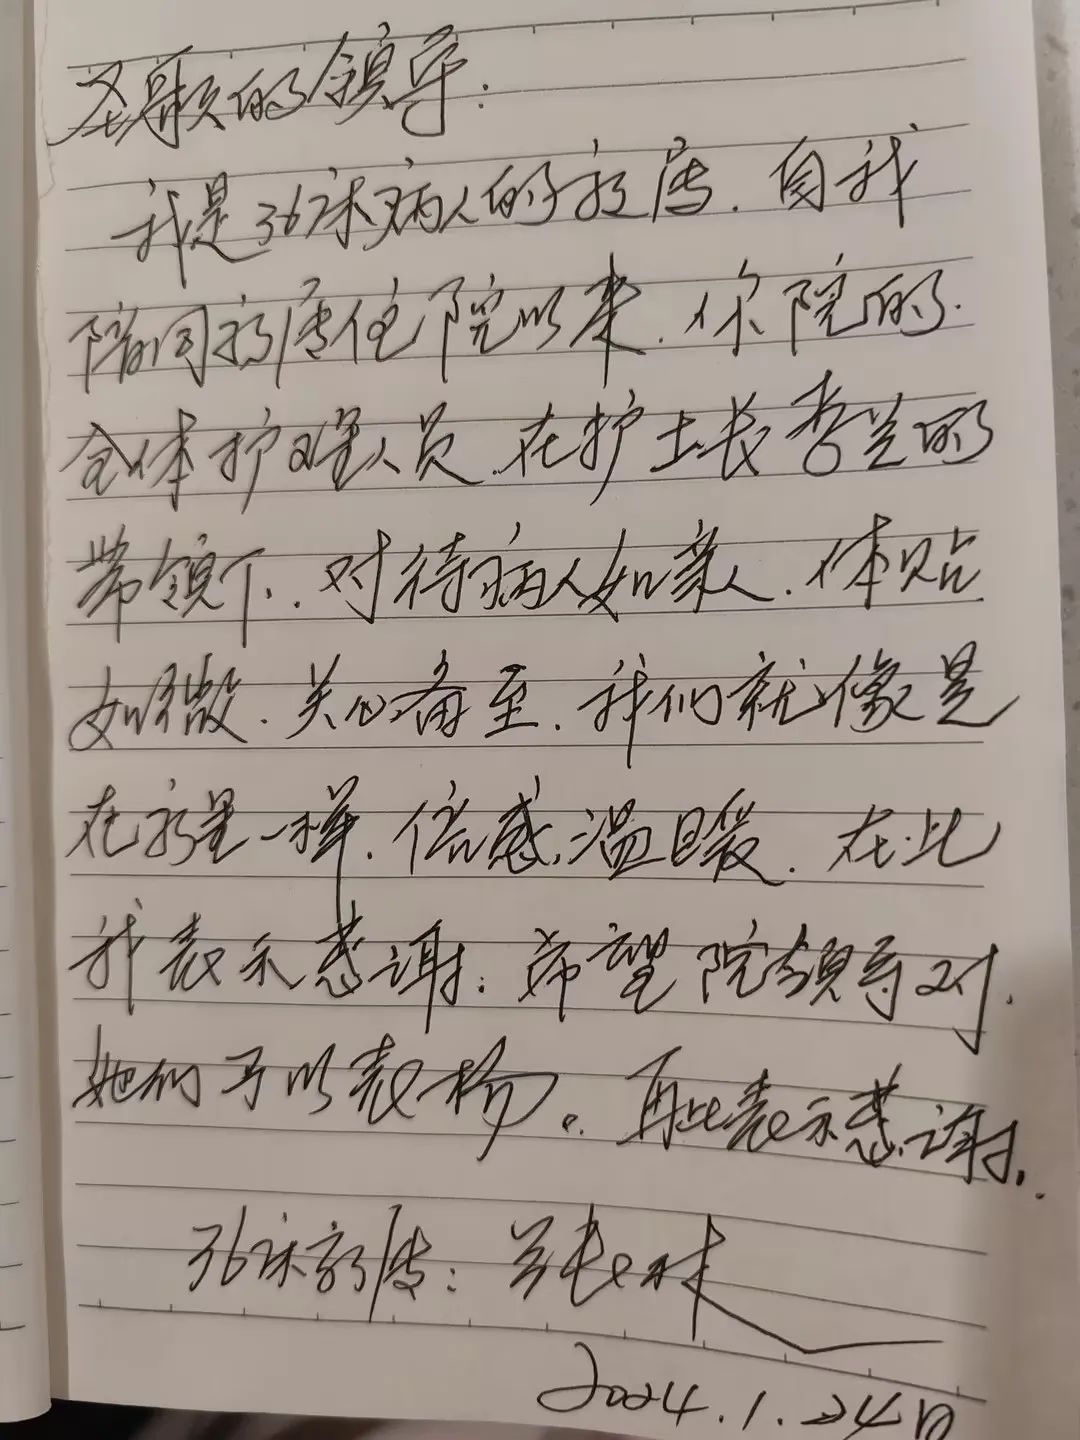 尊敬的领导:
我是36床病人的家属.自我
陪同家属住院以来.你院的.
全体护理人员.在护士长李兰的
带领下.对待病人如亲人.体贴
如微.关心备至.我们就像是
在家里一样.倍感温暖.在此
我表示感谢:希望院领导对.
她们予以表扬。再此表示感谢.
36床家属:
2024.1.24日